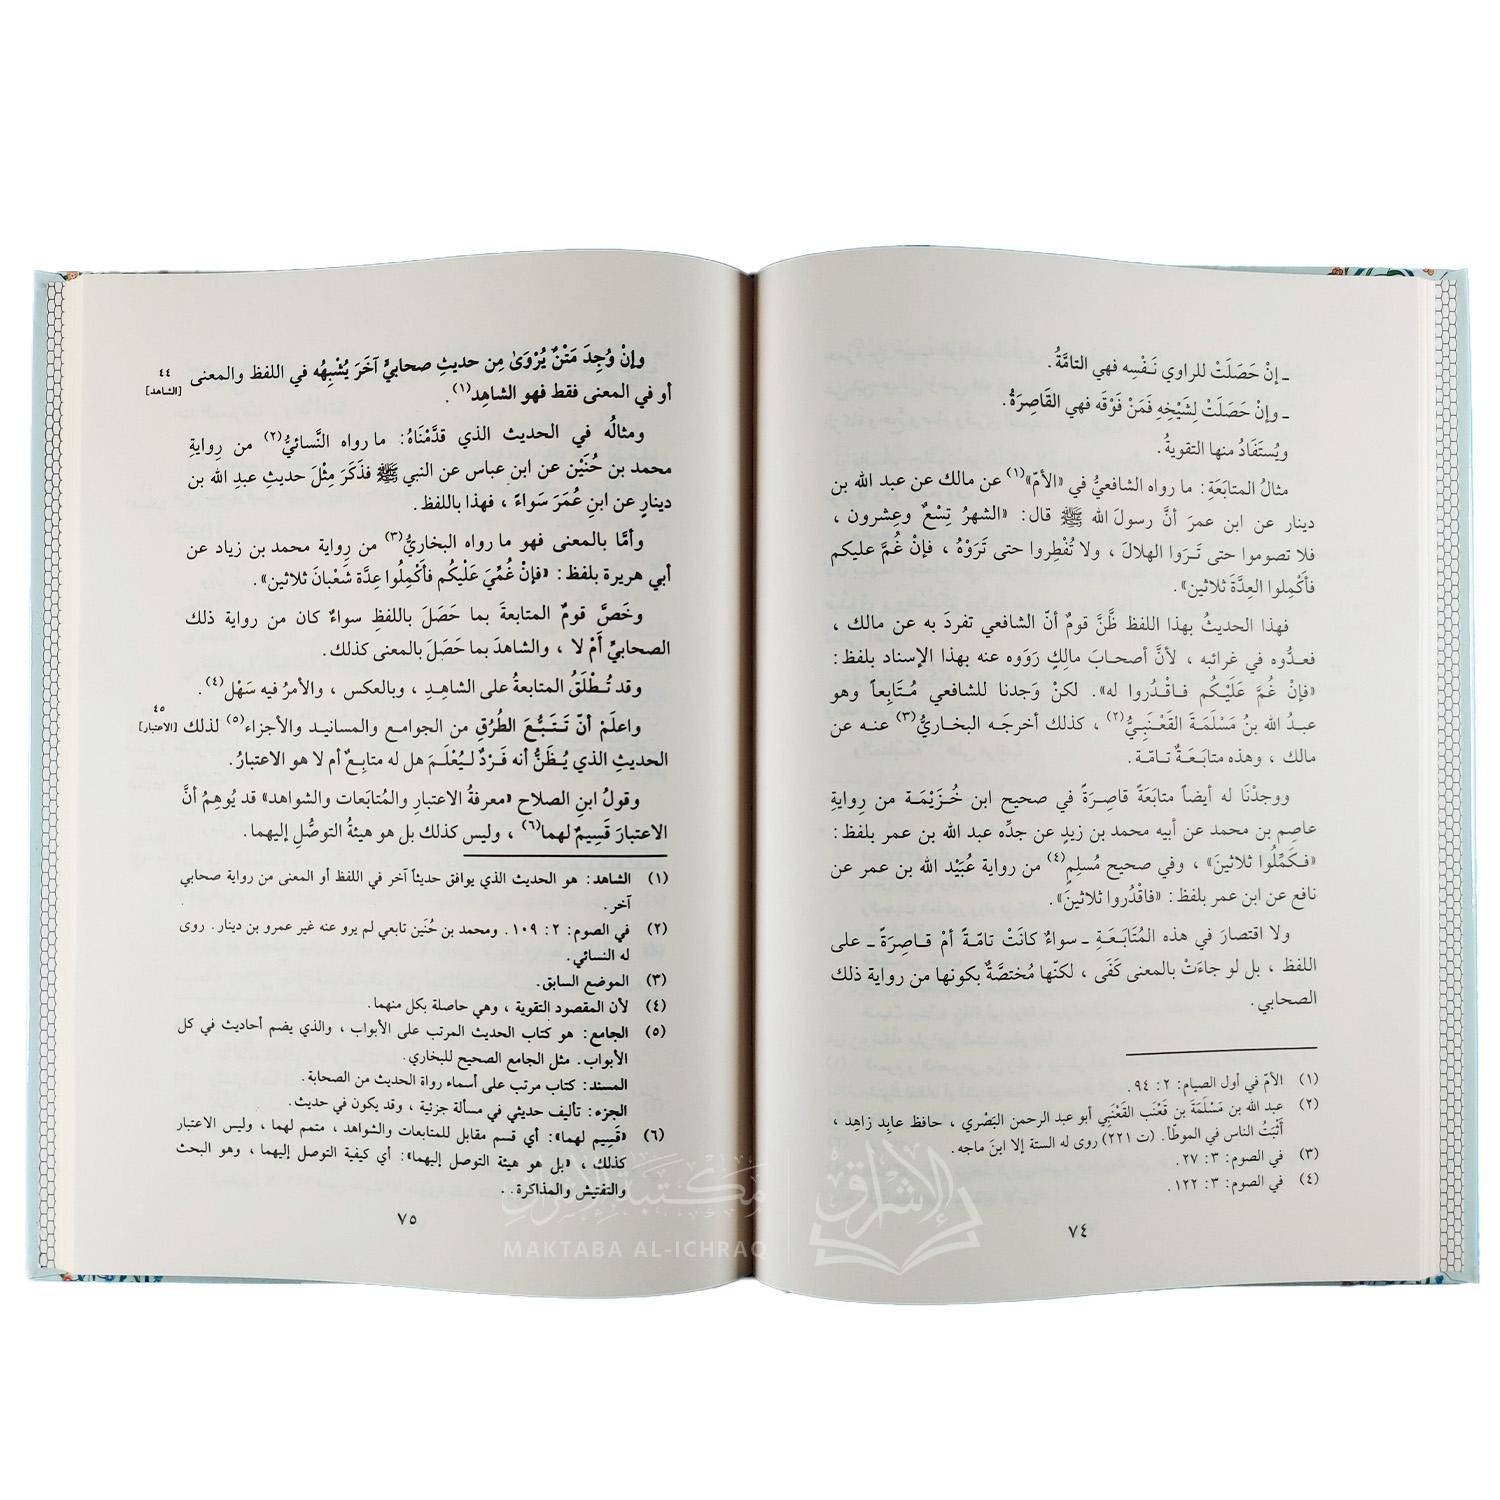 ـ إنْ حَصَلَتْ للراوي نَـفْسِه فهي التامَّةُ.
ـ وإنْ حَصَلَتْ لِشَيْخِهِ فَمَنْ فَوْقَه فهي القَاصِرَةُ.
ويُستَفَادُ منها التقويةُ.
مثالُ المتابَعَةِ: ما رواه الشافعيُّ في «الأمّ»(١) عن مالك عن عبد الله بن
دينار عن ابن عمرَ أنَّ رسولَ الله ﷺ قال: «الشهرُ تِسْعٌ وعِشرون ،
فلا تصوموا حتى تَـرَوا الهلالَ ، ولا تُفْطِروا حتى تَرَوْهُ ، فإنْ غُمَّ عليكم
فأَكْمِلوا العِدَّةَ ثلاثين».
فهذا الحديثُ بهذا اللفظ ظَنَّ قومٌ أنّ الشافعي تفردَ به عن مالك ،
فعـدُّوه في غرائبه ، لأنَّ أصحـابَ مالِكٍ رَوَوه عنه بهذا الإسناد بلفظ:
«فإنْ غُمَّ عَلَيْـكُم فـاقْـدُروا له». لكنْ وَجدنا للشافعي مُتَـابِعاً وهو
عبـدُ الله بنُ مَسْلَمَةَ القَعْنَبِـيُّ(٢) ، كذلك أخرجَـه البخـاريُّ(٣) عنـه عن
مالك ، وهذه متابَـعَـةٌ تـامّـة.
ووجدْنَا له أيضاً متابَعَةً قاصِـرَةً في صحيح ابن خُـزَيْمَـة من رِوايةِ
عاصِم بن محمد عن أبيه محمد بن زيدٍ عن جدِّه عبد الله بن عمر بلفظ:
«فـكَمِّلُوا ثلاثينَ» ، وفي صحيح مُسلِمٍ(٤) من رواية عُبَيْد الله بن عمر عن
نافع عن ابن عمر بلفظ: «فاقْدُروا ثلاثينَ».
ولا اقتصارَ في هذه المُتَابَـعَـةِ ـ سواءٌ كانَتْ تامّـةً أمْ قـاصِـرَةً ـ على
اللفظ ، بل لو جاءَتْ بالمعنى كَفَى ، لكنّها مُختصَّةٌ بكونها من رواية ذلك
الصحابي.
(١) الأمّ في أول الصيام: ٢: ٩٤.
(٢) عبد الله بن مَسْلَمَةَ بن قَعْنَب القَعْنَبِي أبو عبد الرحمن البَصْري ، حافظ عابِد زاهِد ،
أَثْبَتُ الناس في الموطّأ. (ت ٢٢١) روى له الستة إلا ابنَ ماجه.
(٣) في الصوم: ٣: ٢٧.
(٤) في الصوم: ٣: ١٢٢.
٧٤
وإنْ وُجِدَ مَتْنٌ يُرْوَىٰ مِن حديثِ صحابيٍّ آخَرَ يُشْبِهُه في اللفظ والمعنى
٤٤
[الشاهد]
أو في المعنى فقط فهو الشاهِد(١).
ومثالُه في الحديث الذي قدَّمْنَاهُ: ما رواه النَّسائيُّ(٢) من رِوايةِ
محمد بن حُنَيْن عن ابن عباس عن النبي ﷺ فذَكَرَ مِثْلَ حديثِ عبدِ الله بن
دينارٍ عن ابنِ عُمَرَ سَواءً ، فهذا باللفظ.
وأمَّا بالمعنى فهو ما رواه البخاريُّ(٣) من رِواية محمد بن زياد عن
أبي هريرة بلفظ: «فإنْ غُمِّيَ عَلَيْكُم فأَكْمِلُوا عِدَّة شَعْبانَ ثلاثين».
وخَصَّ قومٌ المتابعةَ بما حَصَلَ باللفظِ سواءٌ كان من رواية ذلك
الصحابيِّ أَمْ لا ، والشاهدَ بما حَصَلَ بالمعنى كذلك.
وقد تُـطْلَقُ المتابعةُ على الشاهِـدِ ، وبالعكس ، والأمرُ فيه سَهْل(٤).
٤٥
[الاعتبار]
واعلَمْ أنّ تَـتَـبُّـعَ الطُرُقِ من الجوامـع والمسانيـد والأجزاء(٥) لذلك
الحديثِ الذي يُـظَنُّ أنه فَـرْدٌ لـيُعْلَـمَ هل له متابِـعٌ أم لا هو الاعتبارُ.
وقولُ ابنِ الصلاح «معرفةُ الاعتبار والمُتابَعات والشواهد» قد يُوهِمُ أنَّ
الاعتبارَ قَسِيمٌ لهما(٦) ، وليس كذلك بل هو هيئةُ التوصُّلِ إليهما.
(١) الشاهد: هو الحديث الذي يوافق حديثاً آخر في اللفظ أو المعنى من رواية صحابي
آخر.
(٢) في الصوم: ٢: ١٠٩. ومحمد بن حُنَين تابعي لم يرو عنه غير عمرو بن دينار. روى
له النسائي.
(٣) الموضع السابق.
(٤) لأن المقصود التقوية ، وهي حاصلة بكل منهما.
(٥) الجامع: هو كتاب الحديث المرتب على الأبواب ، والذي يضم أحاديث في كل
الأبواب. مثل الجامع الصحيح للبخاري.
المسند: كتاب مرتب على أسماء رواة الحديث من الصحابة.
الجزء: تأليف حديثي في مسألة جزئية ، وقد يكون في حديث.
(٦) «قَسِيم لهما»: أي قسم مقابل للمتابعات والشواهد ، متمم لهما ، وليس الاعتبار
كذلك ، «بل هو هيئة التوصل إليهما»: أي كيفية التوصل إليهما ، وهو البحث
والتفتيش والمذاكرة..
٧٥
مكتبة الإشراق
MAKTABA AL-ICHRAQ
الإشراق